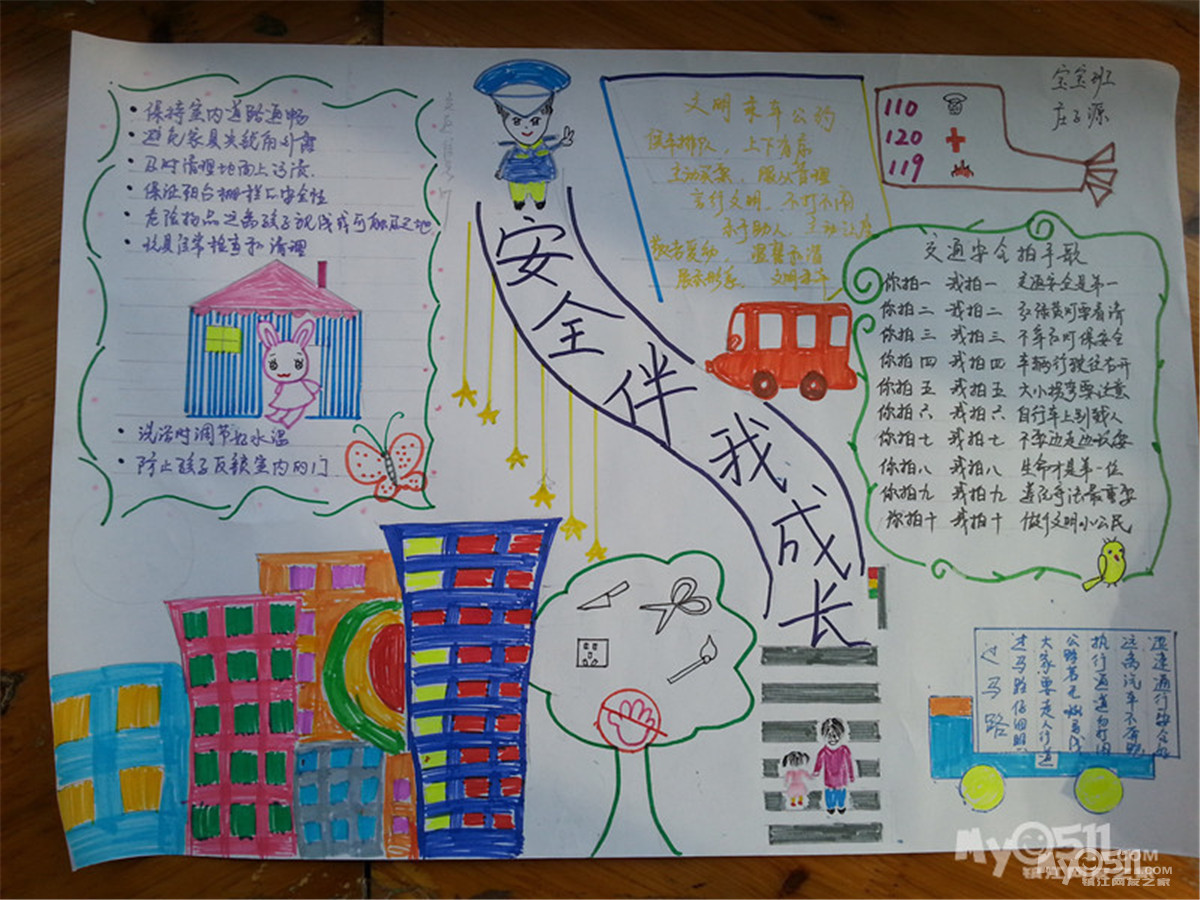 保持室内道路通畅
避免家具尖锐角外露
及时清理地面上污渍.
保证阳台栅栏的安全性
危险物品远离孩子视线或可触及之地
玩具经常检查和清理
洗澡时调节好水温
防止孩子反锁室内的门
安全伴我成长
文明乘车公约
候车排队、上下有序
主动买票、服从管理
言行文明、不打不闹
乐于助人、主动让座
敬老爱幼、温馨和谐
展示形象、文明乘车
110
120
119
宝宝班
庄子源
交通安全拍手歌
你拍一 我拍一 交通安全是第一
你拍二 我拍二 红绿黄灯要看清
你拍三 我拍三 不闯红灯保安全
你拍四 我拍四 车辆行驶往右开
你拍五 我拍五 大小拐弯要注意
你拍六 我拍六 自行车上别载人
你拍七 我拍七 不要边走边玩耍
你拍八 我拍八 生命才是第一位
你拍九 我拍九 遵纪守法最重要
你拍十 我拍十 做个文明小公民
过马路
过马路
大家要走人行道
远离汽车不
My0511.COM
镇江网友之家